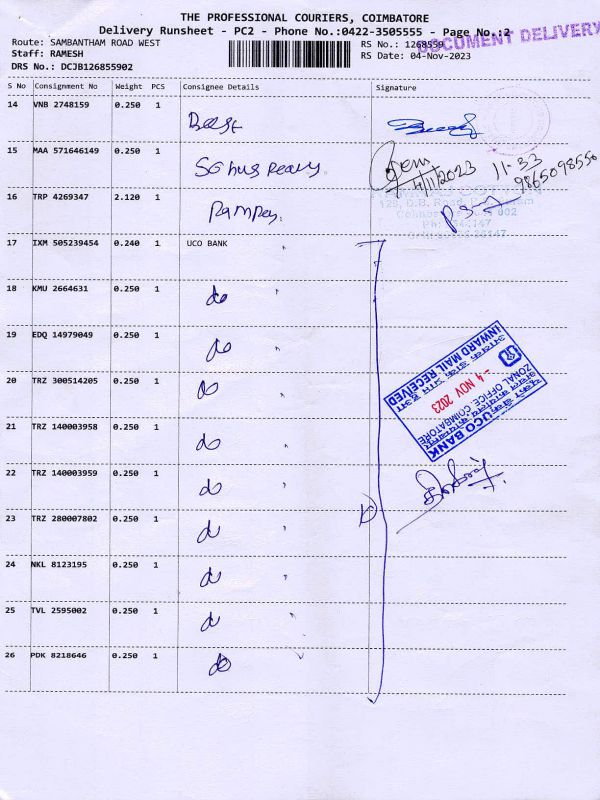 THE PROFESSIONAL COURIERS, COIMBATORE
Delivery Runsheet - PC2 - Phone No.:0422-3505555 - Page No.:2
DOCUMENT DELIVERY
Route: SAMBANTHAM ROAD WEST
RS No.: 1268559
Staff: RAMESH
RS Date: 04-Nov-2023
DRS No.: DCJB126855902
S No Consignment No Weight PCS Consignee Details Signature
14 VNB 2748159 0.250 1
15 MAA 571646149 0.250 1
4/11/2023 11-33
9865098550
16 TRP 4269347 2.120 1
17 IXM 505239454 0.240 1 UCO BANK "
18 KMU 2664631 0.250 1 do
19 EDQ 14979049 0.250 1 do "
20 TRZ 300514205 0.250 1 do "
21 TRZ 140003958 0.250 1 do "
22 TRZ 140003959 0.250 1 do "
23 TRZ 280007802 0.250 1 do "
24 NKL 8123195 0.250 1 do "
25 TVL 2595002 0.250 1 do "
26 PDK 8218646 0.250 1 do
INWARD MAIL RECEIVED
- 4 NOV 2023
ZONAL OFFICE, COIMBATORE
UCO BANK